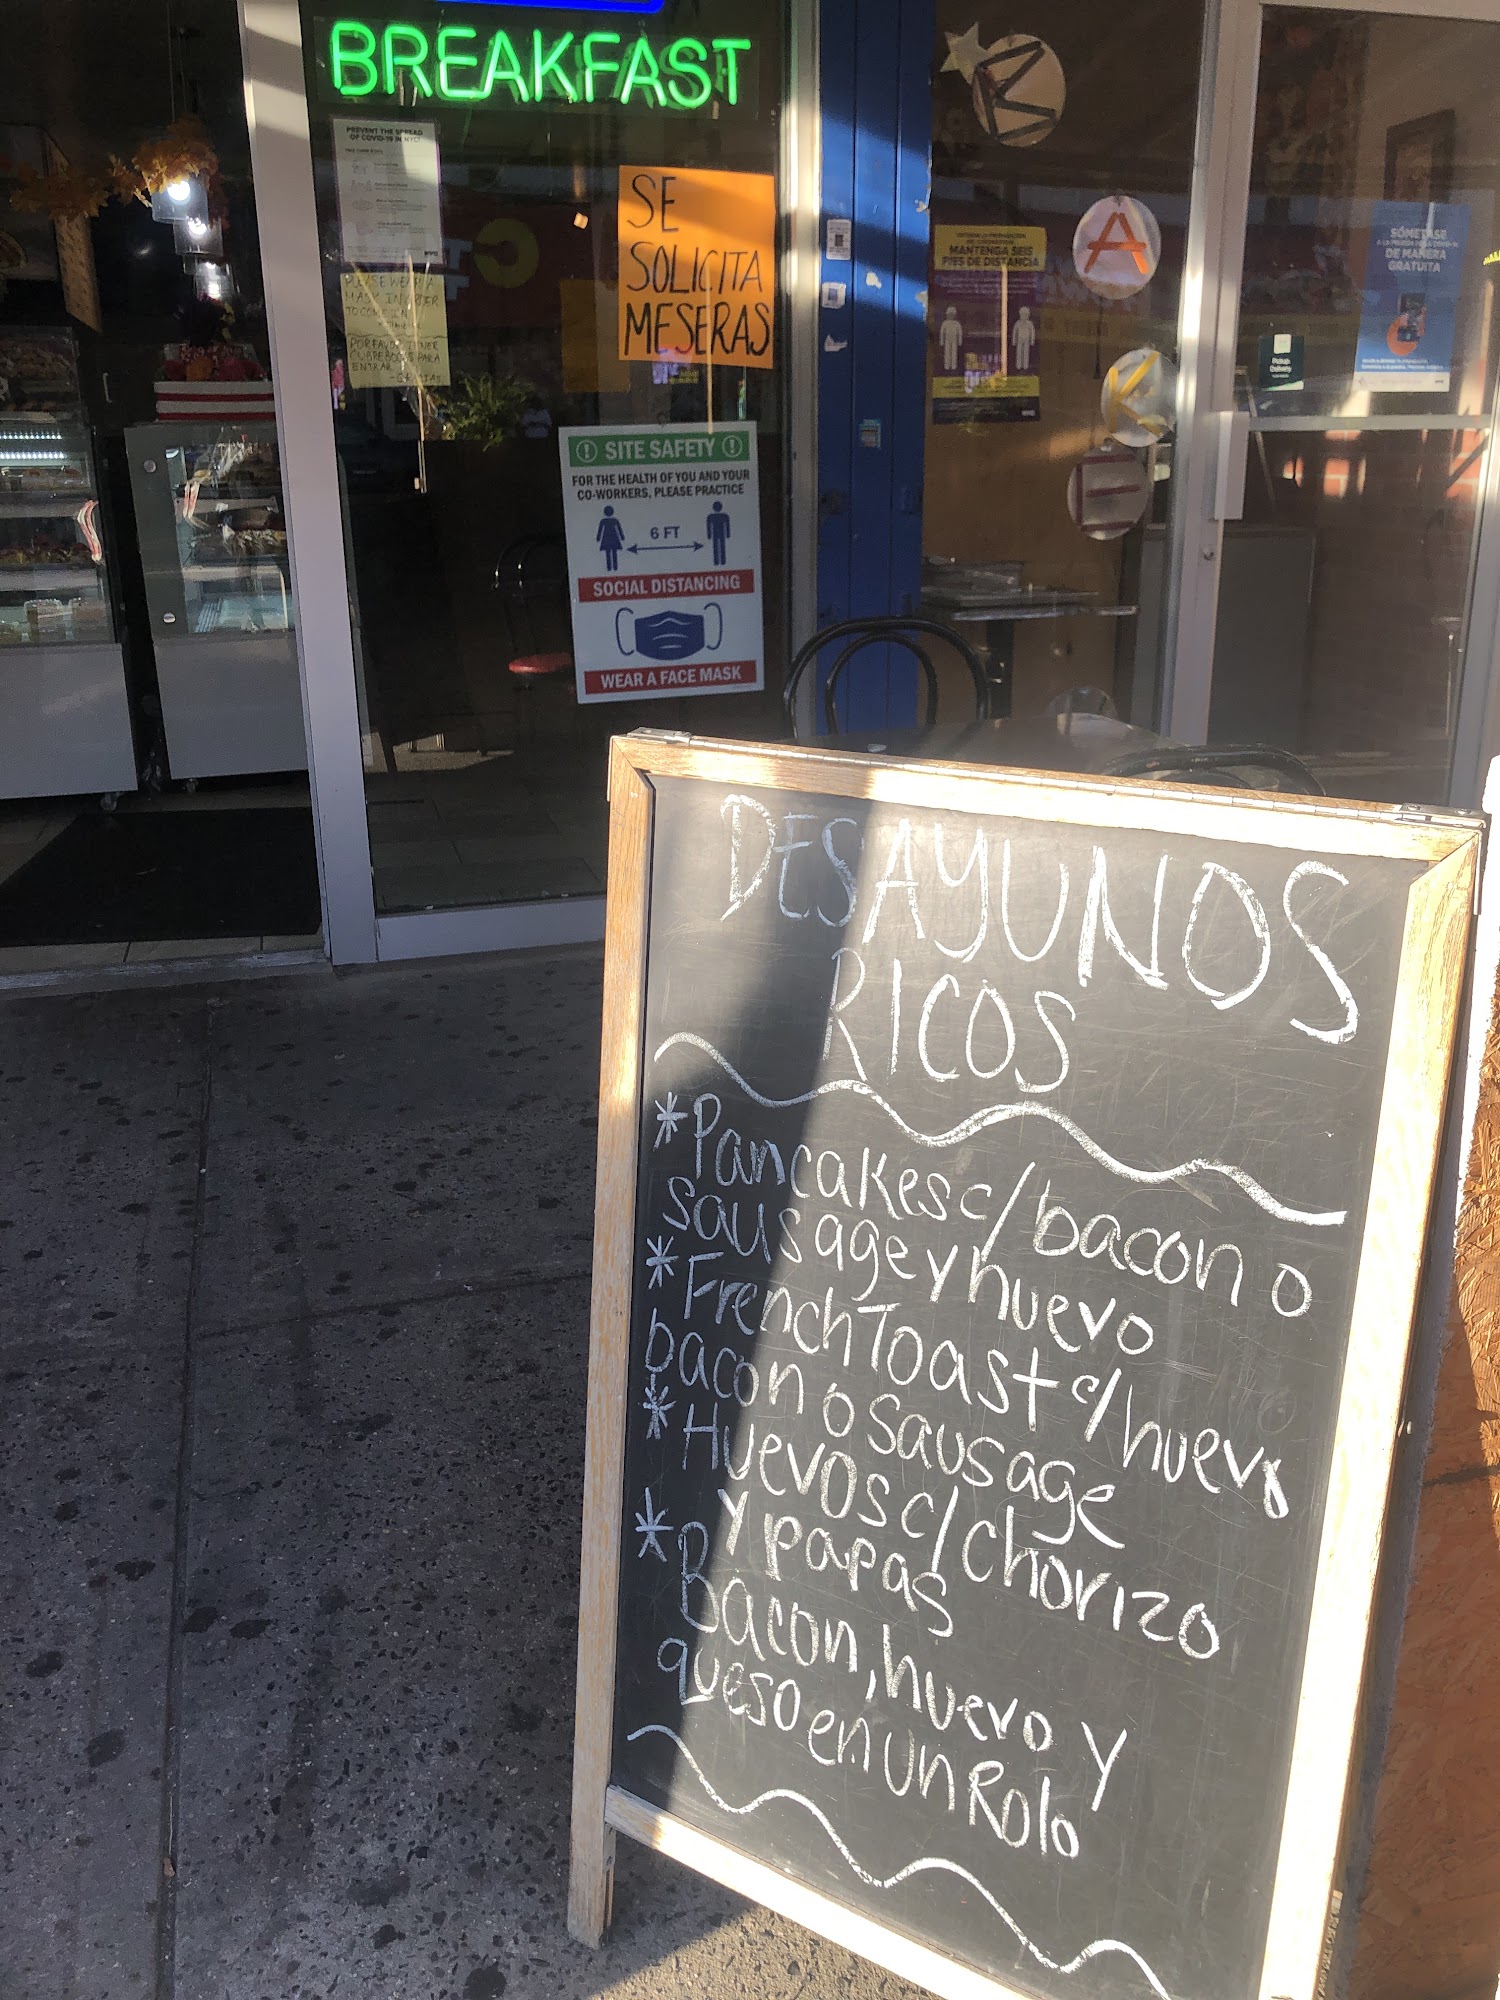 BREAKFAST
PREVENT THE SPREAD
OF COVID-19 IN NYC!
PLEASE WEAR A
MASK IN ORDER
TO COME IN
POR FAVOR TENER
CUBREBOCAS PARA
ENTRAR
SE
SOLICITA
MESERAS
SITE SAFETY
FOR THE HEALTH OF YOU AND YOUR
CO-WORKERS, PLEASE PRACTICE
6 FT
SOCIAL DISTANCING
WEAR A FACE MASK
MANTENGA SEIS
PIES DE DISTANCIA
A
K
E
SÓMETASE
A LA PRUEBA DE LA COVID-19
DE MANERA
GRATUITA
DESAYUNOS
RICOS
*Pancakes c/bacon o
sausage y huevo
*French Toast c/huevo
bacon o sausage
*Huevos c/chorizo
y papas
*Bacon, huevo y
queso en un Rolo